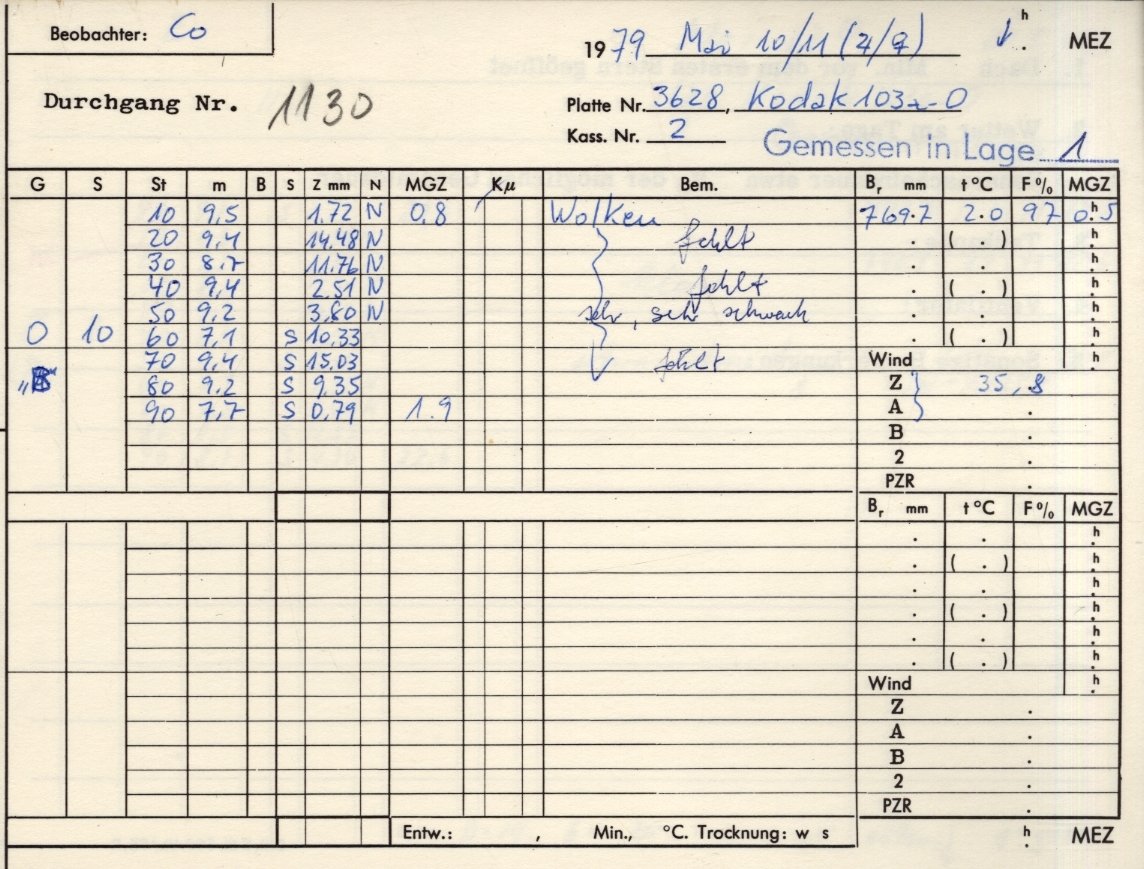 Beobachter: Co
1979 Mai 10/11 h MEZ
Durchgang Nr. 1130
Platte Nr. 3628, Kodak 103a-O
Kass. Nr. 2
Gemessen in Lage 1
G S St m B S Z mm N MGZ Kμ Bem. Br mm t °C F % MGZ
10 9,5 1,72 N 0,8 Wolken 769.7 2.0 97 0.5 h
20 9,4 14.48 N fehlt . ( . ) h
30 8,7 11.76 N . . h
40 9,4 2.51 N fehlt . ( . ) h
50 9,2 3,80 N sehr, sehr schwach . . h
0 10 60 7,1 S 10,33 . ( . ) h
70 9,4 S 15,03 fehlt Wind h
80 9,2 S 9,35 Z 35,8
90 7,7 S 0,79 1.9 A .
B .
2 .
PZR .
Br mm t °C F % MGZ
. . h
. ( . ) h
. . h
. ( . ) h
. . h
. ( . ) h
Wind h
Z .
A .
B .
2 .
PZR .
Entw.: , Min., °C. Trocknung: w s h MEZ